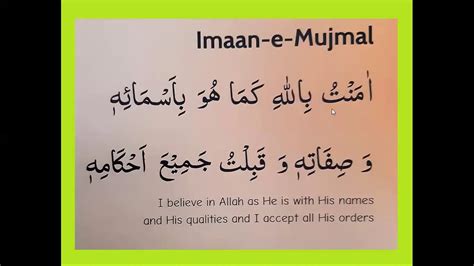 Imaan-e-Mujmal
اٰمَنْتُ بِاللهِ كَمَا هُوَ بِاَسْمَائِهٖ
وَ صِفَاتِهٖ وَ قَبِلْتُ جَمِيْعَ اَحْكَامِهٖ
I believe in Allah as He is with His names
and His qualities and I accept all His orders